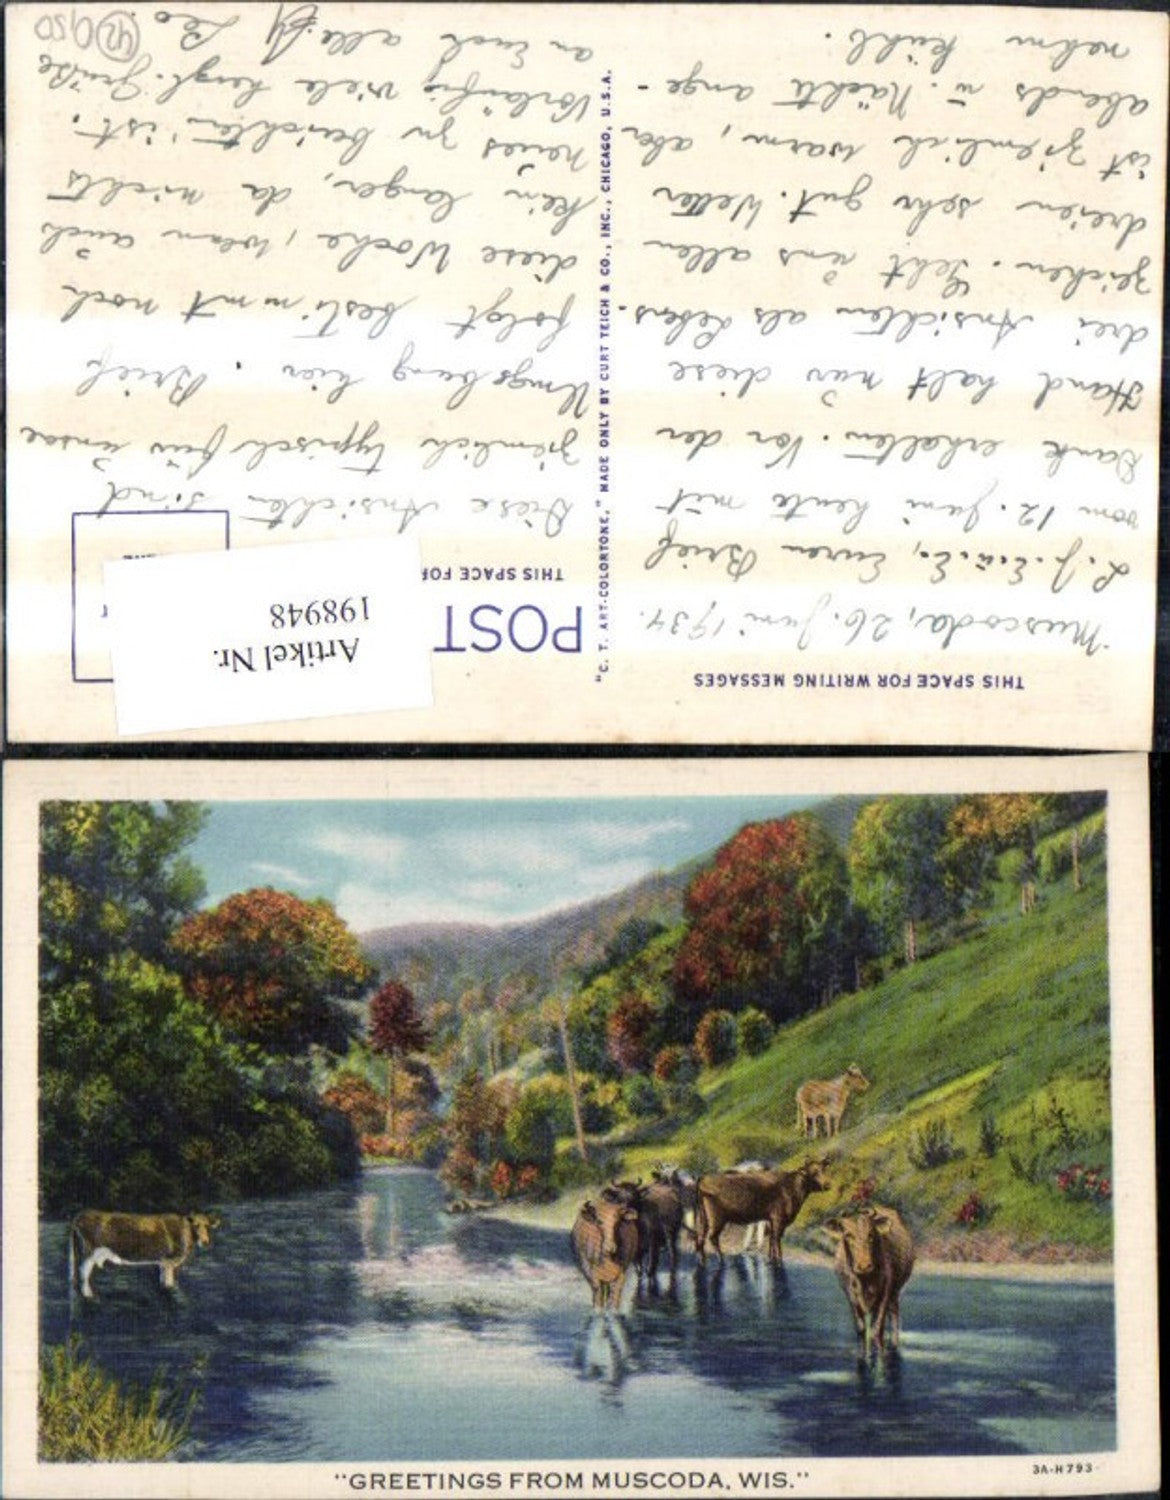 THIS SPACE FOR WRITING MESSAGES
Muscoda, 26. Juni 1934.
L. J. E. u. E., Euren Brief
vom 12. Juni heute mit
Dank erhalten. Vor der
Hand halt nur diese
drei Ansichten als Lebens-
zeichen. Geht uns allen
dreien sehr gut. Wetter
ist ziemlich warm, aber
abends u. Nächte ange-
nehm kühl.
"C. T. ART-COLORTONE," MADE ONLY BY CURT TEICH & CO., INC., CHICAGO, U.S.A.
POST
THIS SPACE FOR
Artikel Nr.
198948
Diese Ansichten sind
ziemlich typisch für unsere
Umgebung hier. Brief
folgt bestimmt noch
diese Woche, wenn auch
kein langer, da nichts
neues zu berichten ist.
Vorläufig viele herzl. Grüße
an Euch alle. Leo.
42 0,50
"GREETINGS FROM MUSCODA, WIS."
3A-H793